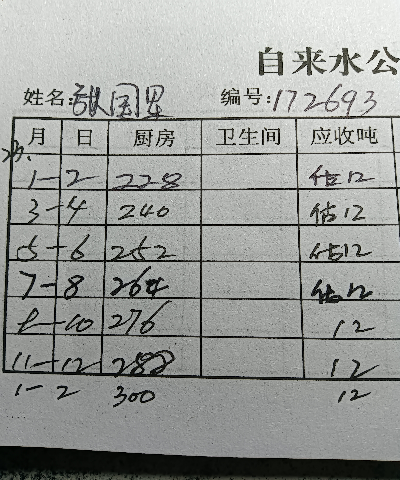 自来水公
姓名: 国 编号:172693
月 日 厨房 卫生间 应收吨
23.
1-2 228 估12
3-4 240 估12
5-6 252 估12
7-8 264 估12
10 276 12
11-12 288 12
1-2 300 12